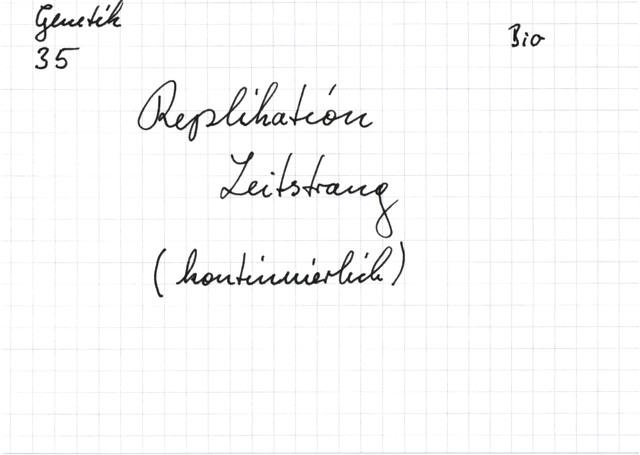 Genetik
35
Bio
Replikation
Leitstrang
(kontinuierlich)